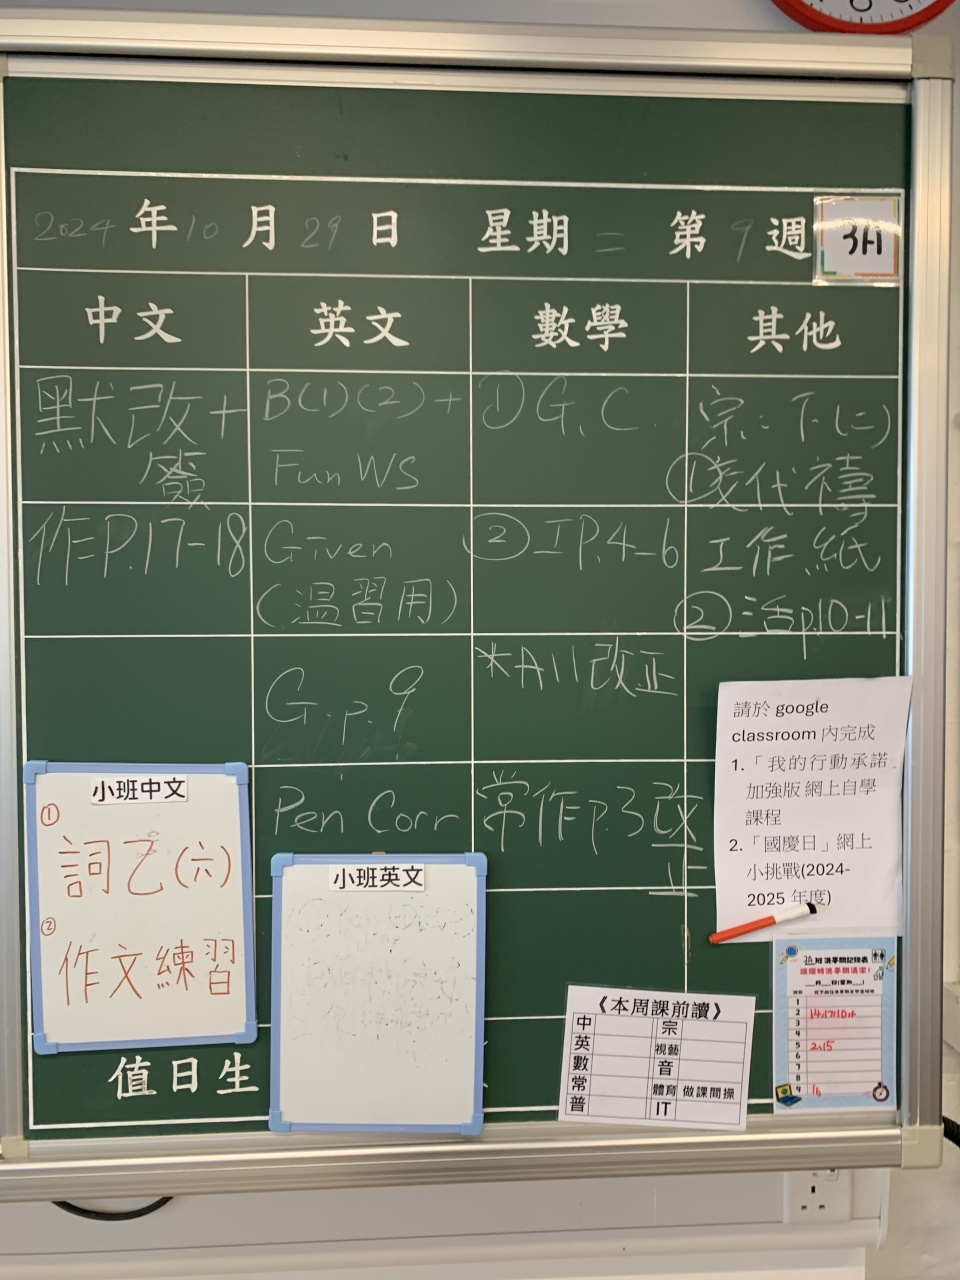 2024年10月29日 星期二 第9週 3A
中文 英文 數學 其他
默改+
簽
作P.17-18
B(1)(2)+
Fun WS
Given
(温習用)
G.p.9
Pen Corr
① G.C.
② 工P.4-6
*All改正
常作p.3改
正
宗:下(二)
①交代禱
工作紙
②活p.10-11
小班中文
①
詞乙(六)
②
作文練習
小班英文
請於 google
classroom 內完成
1.「我的行動承諾
加強版 網上自學
課程
2.「國慶日」網上
小挑戰(2024-
2025 年度)
值日生
《本周課前讀》
中 宗
英 視藝
數 音
常 體育 做課間操
普 IT
3A班洗手間記錄表
請保持洗手間清潔!
1
2
3
4
5 2,15
6
7
8
9 16